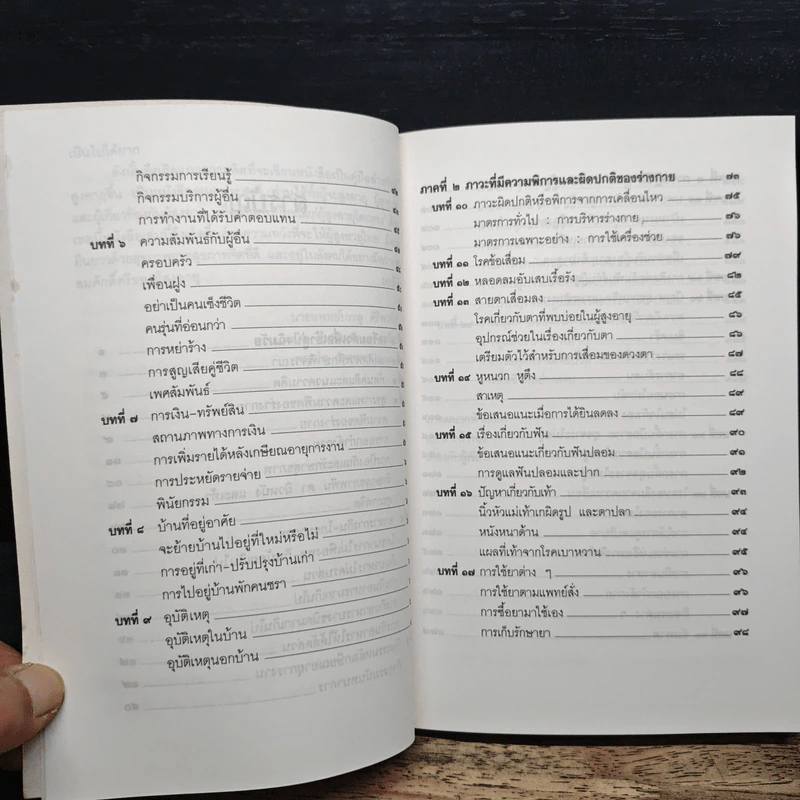 กิจกรรมการเรียนรู้
กิจกรรมบริการผู้อื่น
การทำงานที่ได้รับค่าตอบแทน
บทที่ ๖ ความสัมพันธ์กับผู้อื่น
ครอบครัว
เพื่อนฝูง
อย่าเป็นคนเซ็งชีวิต
คนรุ่นที่อ่อนกว่า
การหย่าร้าง
การสูญเสียคู่ชีวิต
เพศสัมพันธ์
บทที่ ๗ การเงิน-ทรัพย์สิน
สถานภาพทางการเงิน
การเพิ่มรายได้หลังเกษียณอายุการงาน
การประหยัดรายจ่าย
พินัยกรรม
บทที่ ๘ บ้านที่อยู่อาศัย
จะย้ายบ้านไปอยู่ที่ใหม่หรือไม่
การอยู่ที่เก่า-ปรับปรุงบ้านเก่า
การไปอยู่บ้านพักคนชรา
บทที่ ๙ อุบัติเหตุ
อุบัติเหตุในบ้าน
อุบัติเหตุนอกบ้าน
ภาคที่ ๒ ภาวะที่มีความพิการและผิดปกติของร่างกาย ๗๓
บทที่ ๑๐ ภาวะผิดปกติหรือพิการจากการเคลื่อนไหว ๗๕
มาตรการทั่วไป : การบริหารร่างกาย ๗๖
มาตรการเฉพาะอย่าง : การใช้เครื่องช่วย ๗๖
บทที่ ๑๑ โรคข้อเสื่อม ๗๙
บทที่ ๑๒ หลอดลมอับเสบเรื้อรัง ๘๒
บทที่ ๑๓ สายตาเสื่อมลง ๘๕
โรคเกี่ยวกับตาที่พบบ่อยในผู้สูงอายุ ๘๖
อุปกรณ์ช่วยในเรื่องเกี่ยวกับตา ๘๖
เตรียมตัวไว้สำหรับการเสื่อมของดวงตา ๘๗
บทที่ ๑๔ หูหนวก หูตึง ๘๘
สาเหตุ ๘๙
ข้อเสนอแนะเมื่อการได้ยินลดลง ๘๙
บทที่ ๑๕ เรื่องเกี่ยวกับฟัน ๙๐
ข้อเสนอแนะเกี่ยวกับฟันปลอม ๙๑
การดูแลฟันปลอมและปาก ๙๒
บทที่ ๑๖ ปัญหาเกี่ยวกับเท้า ๙๓
นิ้วหัวแม่เท้าเกิดผิดรูป และตาปลา ๙๔
หนังหนาด้าน ๙๔
แผลที่เท้าจากโรคเบาหวาน ๙๕
บทที่ ๑๗ การใช้ยาต่าง ๆ ๙๖
การใช้ยาตามแพทย์สั่ง ๙๖
การซื้อยามาใช้เอง ๙๗
การเก็บรักษายา ๙๘